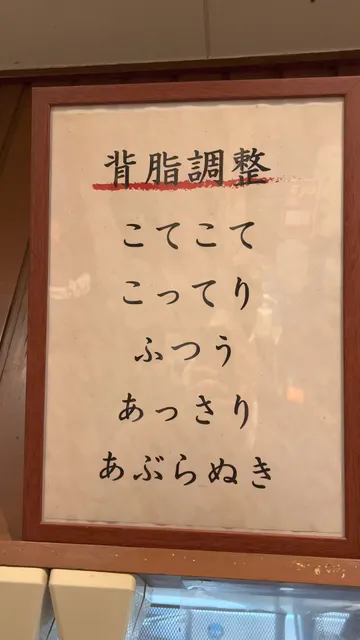 背脂調整
こてこて
こってり
ふつう
あっさり
あぶらぬき